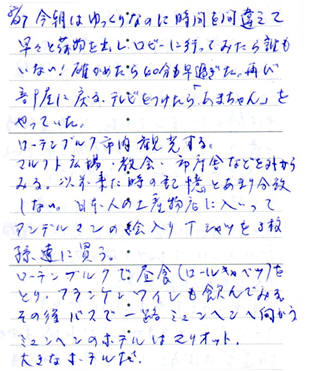 5/27 今朝はゆっくりなのに時間を間違えて
早々と荷物を出しロビーに行ってみたら誰も
いない！確かめたら40分も早過ぎた。再び
部屋に戻る。テレビをつけたら「あまちゃん」を
やっていた。
ローテンブルク市内観光する。
マルクト広場・教会・市庁舎などを外から
みる。以前来た時の記憶とあまり合致
しない。日本人の土産物店に入って
アンデルマンの絵入りTシャツを3枚
孫達に買う。
ローテンブルクで昼食(ロールキャベツ)を
とり、フランケンワインも飲んでみる。
その後バスで一路ミュンヘンへ向かう
ミュンヘンのホテルはマリオット。
大きなホテルだ。